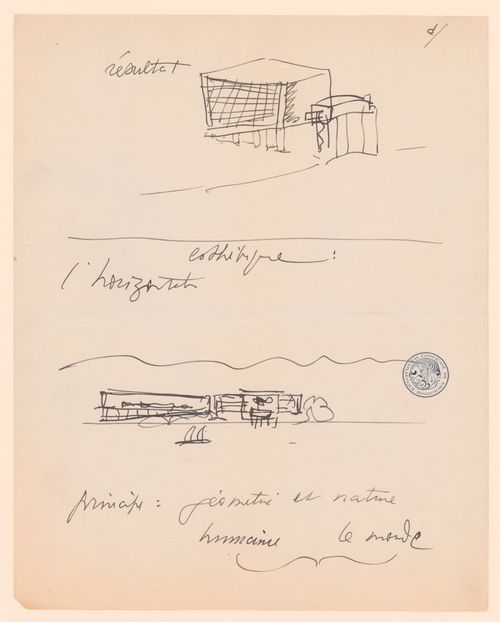 d/
résultat
esthétique :
l'horizontale
principe : géométrie et nature
humaine le monde